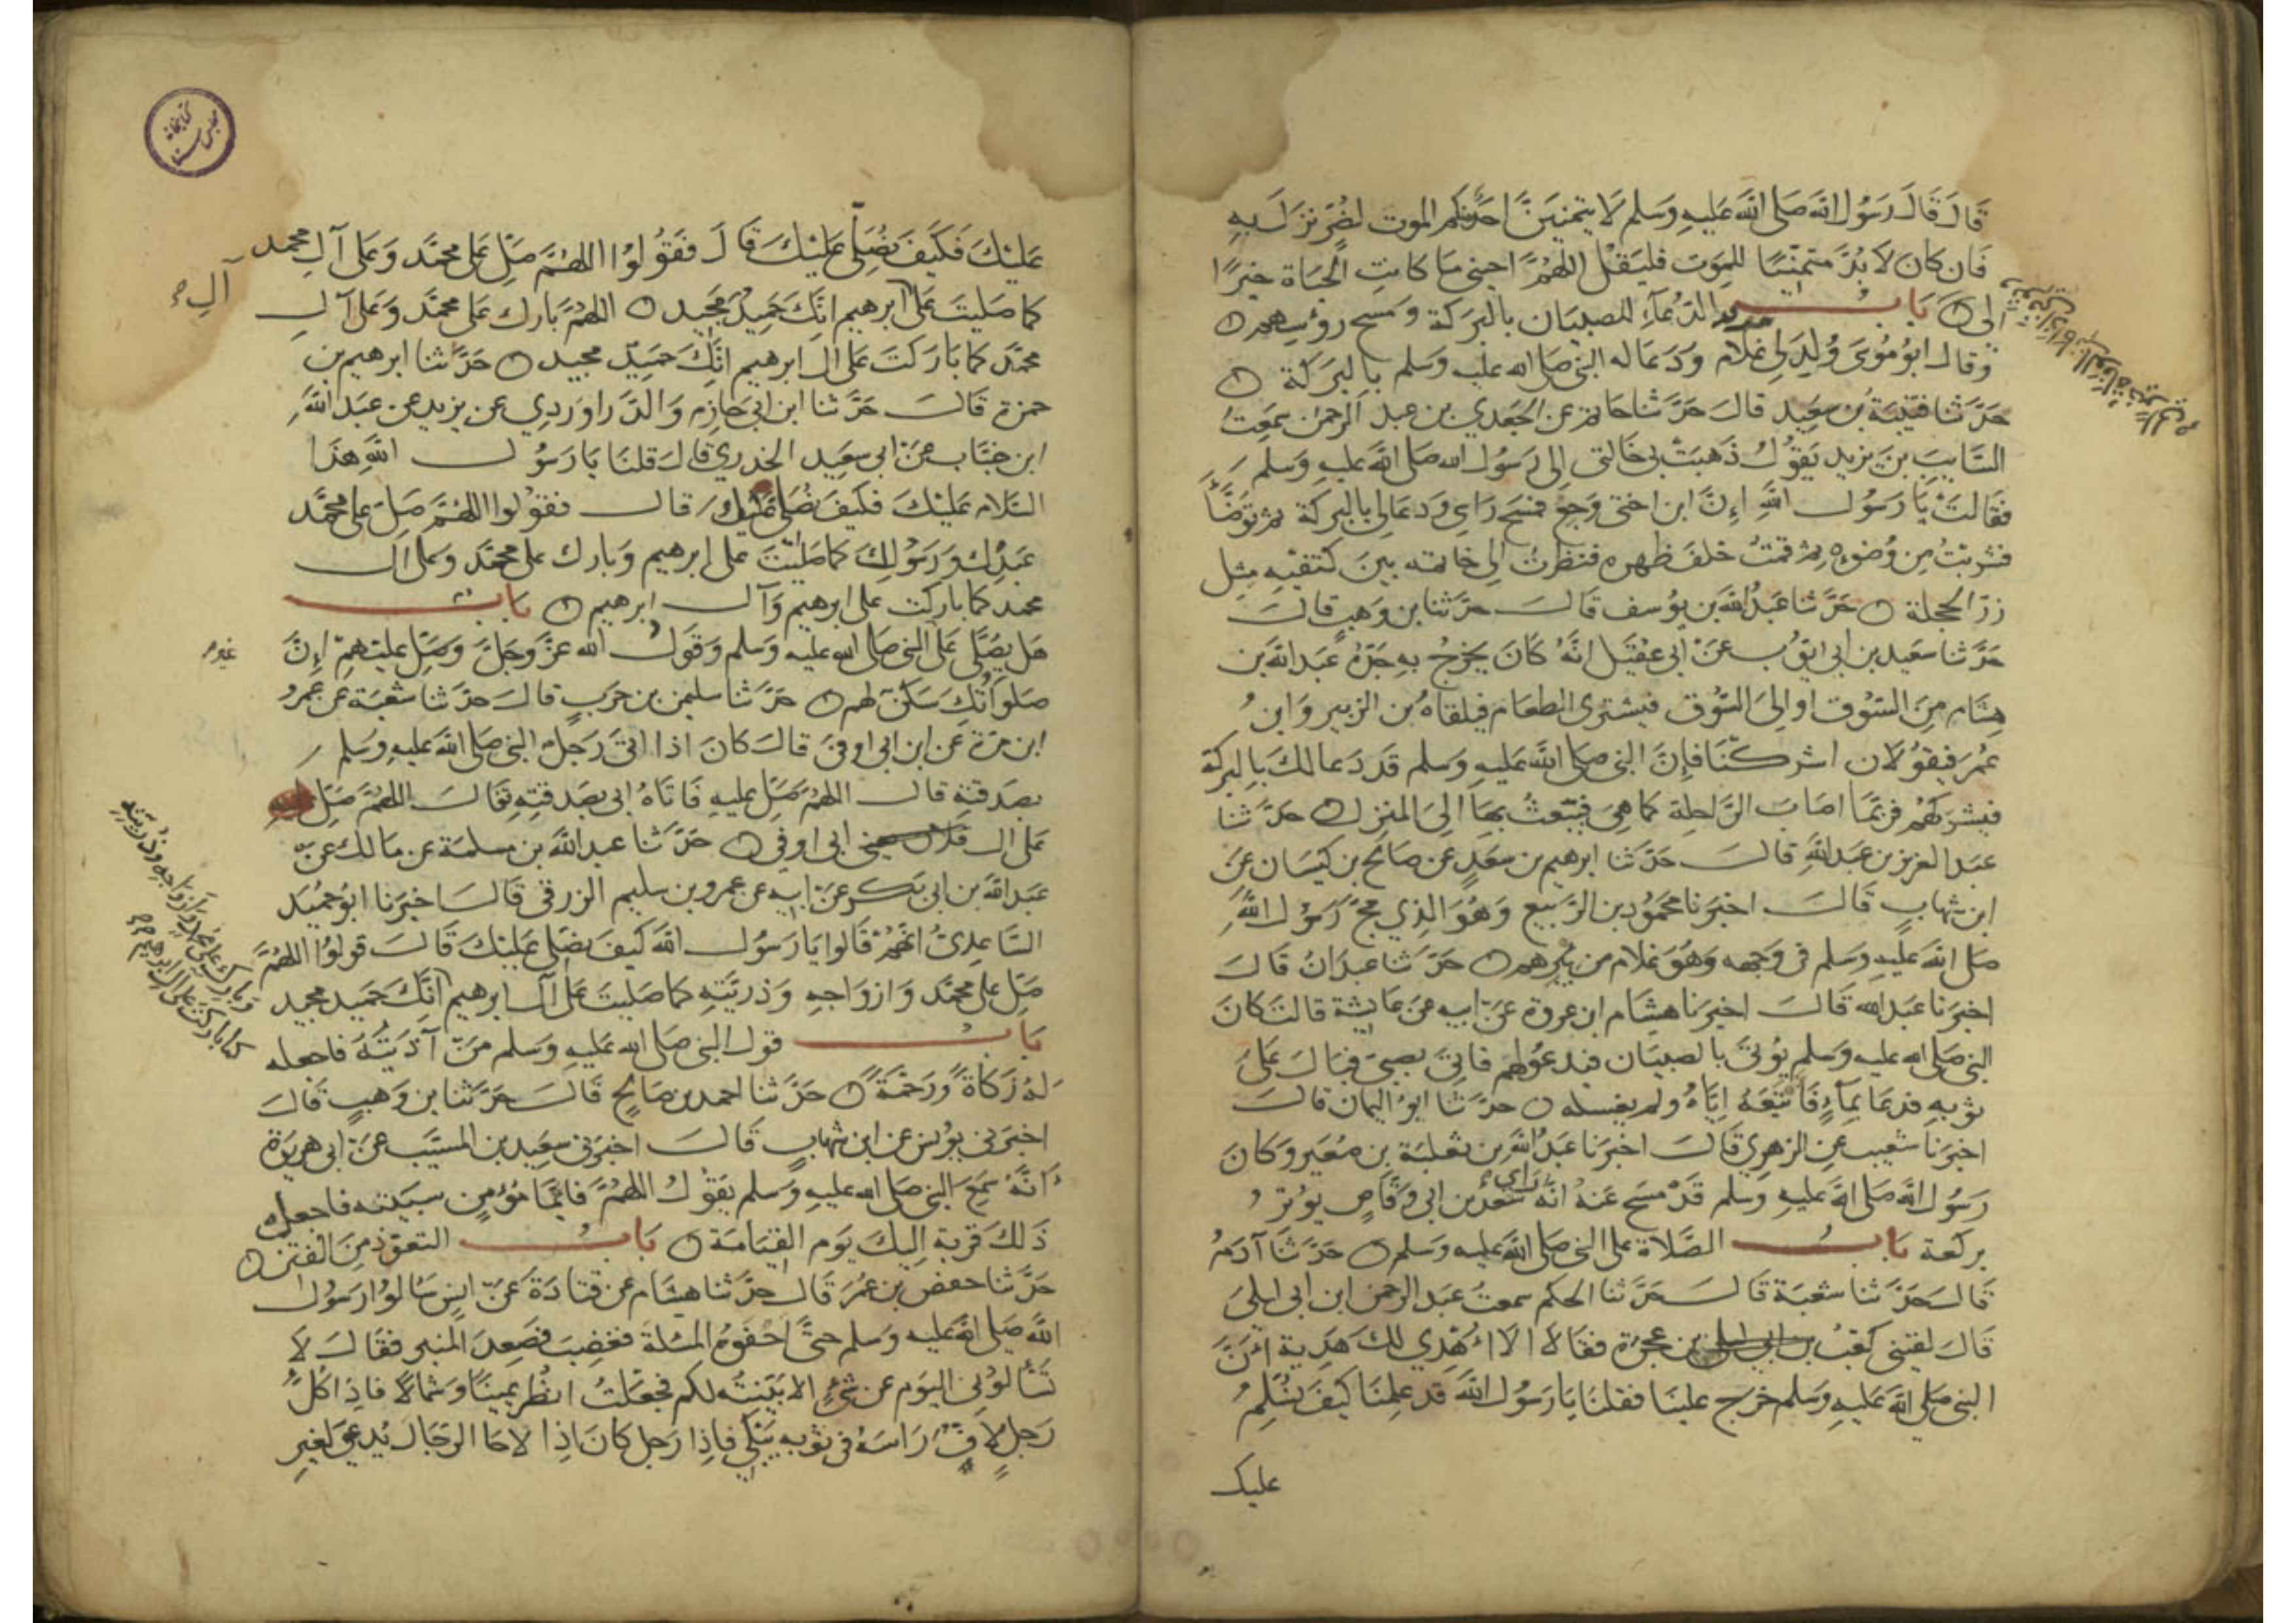 قَالَ قَالَ رَسُولُ اللَّه صَلى اللَّه عَليهِ وَسَلم لَا يتمنيَنَّ احَدكم الموت لضُرّ نزَلَ بِهِ
فَان كان لَا بُدَّ متمنّيًا للموت فليَقل اللهُمَّ احيني مَا كانتِ الحَيَاة خيرًا
لى بَابُ الدُّعآءِ للصبيَان بالبَركة وَمسح رؤسهم
وَقالَ ابُو مُوسَى وُلِدَ لي غلام وَدَعَا له النبي صَلى الله عليه وَسلم بالبَركة
حَدَّثنا قتيبَة بن سَعِيد قالَ حَدَّثنا حاتم عن الجَعدي بن عبد الرحمن سمعتُ
السَّايبَ بن يزيد يَقُولُ ذهَبَتْ بي خَالتي الى رَسُول الله صَلى اللَّه عليه وَسلم
فقالتْ يَا رَسُولَ اللَّهِ إنَّ ابن اختى وَجِعٌ فمسَح رَاسِي وَدعَا لى بالبركة ثم توَضَّأ
فشربتُ مِن وُضوءِهِ ثم قمتُ خلفَ ظهره فنظرتُ الى خاتمه بينَ كتفيْهِ مِثل
زرّ الحجلة حَدَّثنا عَبدُ اللَّه بن يوُسف قَالَ حَدَّثنا بن وَهبٍ قالَ
حَدَّثنا سَعيد بن ابى ايّوُب عَنْ ابى عقيل انَّهُ كَانَ يَخرُجُ بِهِ جَدّهُ عَبد اللَّه بن
هِشَام مِنَ السّوُق او الى السُّوق فيشترى الطعَام فيلقاهُ بن الزبير وَابنُ
عُمَر فيقوُلان اشركنَا فإنَّ النبى صَلى اللَّه عَليهِ وَسلم قد دَعا لكَ بالبركة
فيشركهُم فربّمَا اصَابَ الرَّاحلة كما هِيَ فيَبعثُ بهَا الىَ المنزل حَدَّثنا
عَبد العزيز بن عَبد اللَّهِ قالَ حَدّثنا ابرهيم بن سَعدٍ عن صَالح بن كيسَان عَن
ابن شهابٍ قَالَ اخبَرنا محمُود بن الرَّبيع وَهُوَ الذي مجَّ رَسُولُ اللَّه
صَلى اللَّه عَليهِ وَسلم فى وَجهه وَهوَ غلام من بيرهم حَدَّثنا عَبدَانُ قالَ
اخبَرنا عَبد الله قَالَ اخبَرنا هِشَام ابن عروة عَنْ ابيه عَن عَايشة قالت كانَ
النبى صَلى الله عليه وَسلم يوُتىَ بالصبيَان فيدعوُ لهم فاتىَ بصبى فبَالَ عَلى
ثوبهِ فدعَا بمآءٍ فَاتبَعَهُ ايّاهُ ولم يغسله حَدَّثنا ابوُ اليمان قالَ
اخبرَنا شعيب عن الزهري قَالَ اخبرَنا عَبدُ اللَّه بن ثعلبَة بن صُعَير وَكانَ
رَسُولُ اللَّه صَلى اللَّه عليهِ وَسلم قَدْ مَسَح عَنهُ انَّهُ رَاى سَعد بن ابى وَقَّاصٍ يوُترُ
بركعة بَابُ الصَّلاة على النبى صَلى اللَّه عَليه وَسلم حَدَّثنا آدَمُ
قَالَ حَدَّثنا شعْبَة قَالَ حَدَّثنا الحكم سمعتُ عَبد الرحمن ابن ابى ليلىَ
قَالَ لقينى كعْبُ بن عجرَة فقالَ الَا أُهْدِي لكَ هَدِية انَّ
النبى صَلى اللَّه عَليهِ وَسلم خرج علينا فقلنَا يَا رَسُول اللَّه قد علِمنَا كيفَ نُسَلِمُ
عليك
عَليْكَ فكَيفَ نُصَلى عَليْكَ قَالَ فقوُلوُا اللهُمَّ صَلِّ عَلى محمَّد وَعَلى آلِ محمد
آل
كما صَليتَ عَلى ابرهيم انّكَ حَمِيدٌ مجَيد اللهُمَّ بَارك عَلى محمَّد وَعَلى آل
محمَّد كما بَارَكتَ عَلى ال ابرهيم انّكَ حَمِيدٌ مجيد حَدَّثنا ابرهيم بن
حمزة قَالَ حَدَّثنا ابن ابى حَازم وَالدَّراوَردِي عن يزيد عن عَبد اللَّه
ابن خبَّاب عَنْ ابى سَعِيد الخدري قالَ قلنَا يَا رَسُولَ اللَّهِ هذا
السَّلام عَليْكَ فكَيفَ نُصَلى عليك قالَ فقوُلوا اللهُمَّ صَلِّ على محمَّد
عَبدِكَ وَرَسُولِكَ كما صَليْتَ على ابرهيم وَبارك على محمَّد وَعلى آل
محمد كما باركت على ابرهيم وَآل ابرهيم بَابُ
هَل يُصَلَّى عَلى النبى صَلى الله عليه وَسَلم وَقولِ الله عزَّ وَجَلَّ وَصَلِّ عليْهمْ إنَّ
صَلَوَاتَكَ سَكَنٌ لهم حَدَّثنا سليمن بن حَرَبٍ قالَ حَدَّثنا شعْبَة عن عَمرو
ابن مرّة عَن ابن ابى اوفىَ قالَ كانَ اذا اتى رَجلٌ النبى صَلى اللَّه عليهِ وَسَلم
بصَدقتِهِ قالَ اللهُمَّ صَلِّ عليهِ فَاتاهُ ابى بصَدقتِهِ فقَالَ اللهُمَّ صَلِّ
عَلى ال ابى اوفى حَدَّثنا عبد اللَّه بن مسلمة عن مَالك عَنْ
عَبد اللَّه بن ابى بَكر عَنْ ابيهِ عن عمرو بن سليم الزرقى قَالَ اخبَرنا ابوُ حُميْد
السَّاعِدِىُّ انهُمْ قَالوا يَا رَسُول اللَّه كيفَ نصَلى عَليْكَ قَالَ قولوُا اللهُمَّ
صَلِّ على محمَّد وَازوَاجِهِ وَذريّتِهِ كما صَليتَ عَلى آل ابرهيم انَّكَ حَميد مجيد
وبارك على محمد وازواجه وذريته
كما باركت على ال ابرهيم
بَابُ قول النبى صَلى الله عَليهِ وَسلم مَنْ آذَيْتُهُ فاجعله
لهُ زَكاةً وَرَحْمَةً حَدَّثنا احمد بن صَالح قَالَ حَدَّثنا بن وَهبٍ قَالَ
اخبَرَنى يوُنس عن ابن شهابٍ قَالَ اخبَرَنى سَعِيد بن المسيَّب عَنْ ابى هريرَة
انَّهُ سمِعَ النبى صَلى الله عليهِ وَسلم يقوُلُ اللهُمَّ فايّمَا مُؤمِنٍ سببته فاجعل
ذَلكَ قربَة اليكَ يَوم القيَامَة بَابُ التعَوّذ مِنَ الفتن
حَدَّثنا حفص بن عُمَرَ قَالَ حَدَّثنا هشَام عن قتادَةَ عَنْ انسٍ سَالوُا رَسوُل
اللَّه صَلى اللَّه عليه وَسلم حتَّى احفوهُ المسْلة فغضِبَ فصَعِدَ المنبر فقالَ لَا
تسْألوُنى اليَوم عن شىءٍ الا بَيّنتُه لكم فجعَلتُ انظر يمينًا وَشمالًا فاذا كلُّ
رَجلٍ لَافٌّ رَاسَهُ فى ثوبه يَبْكِي فاذا رَجلٌ كانَ اذا لَاحَا الرّجَالَ يُدعَى لغيرِ